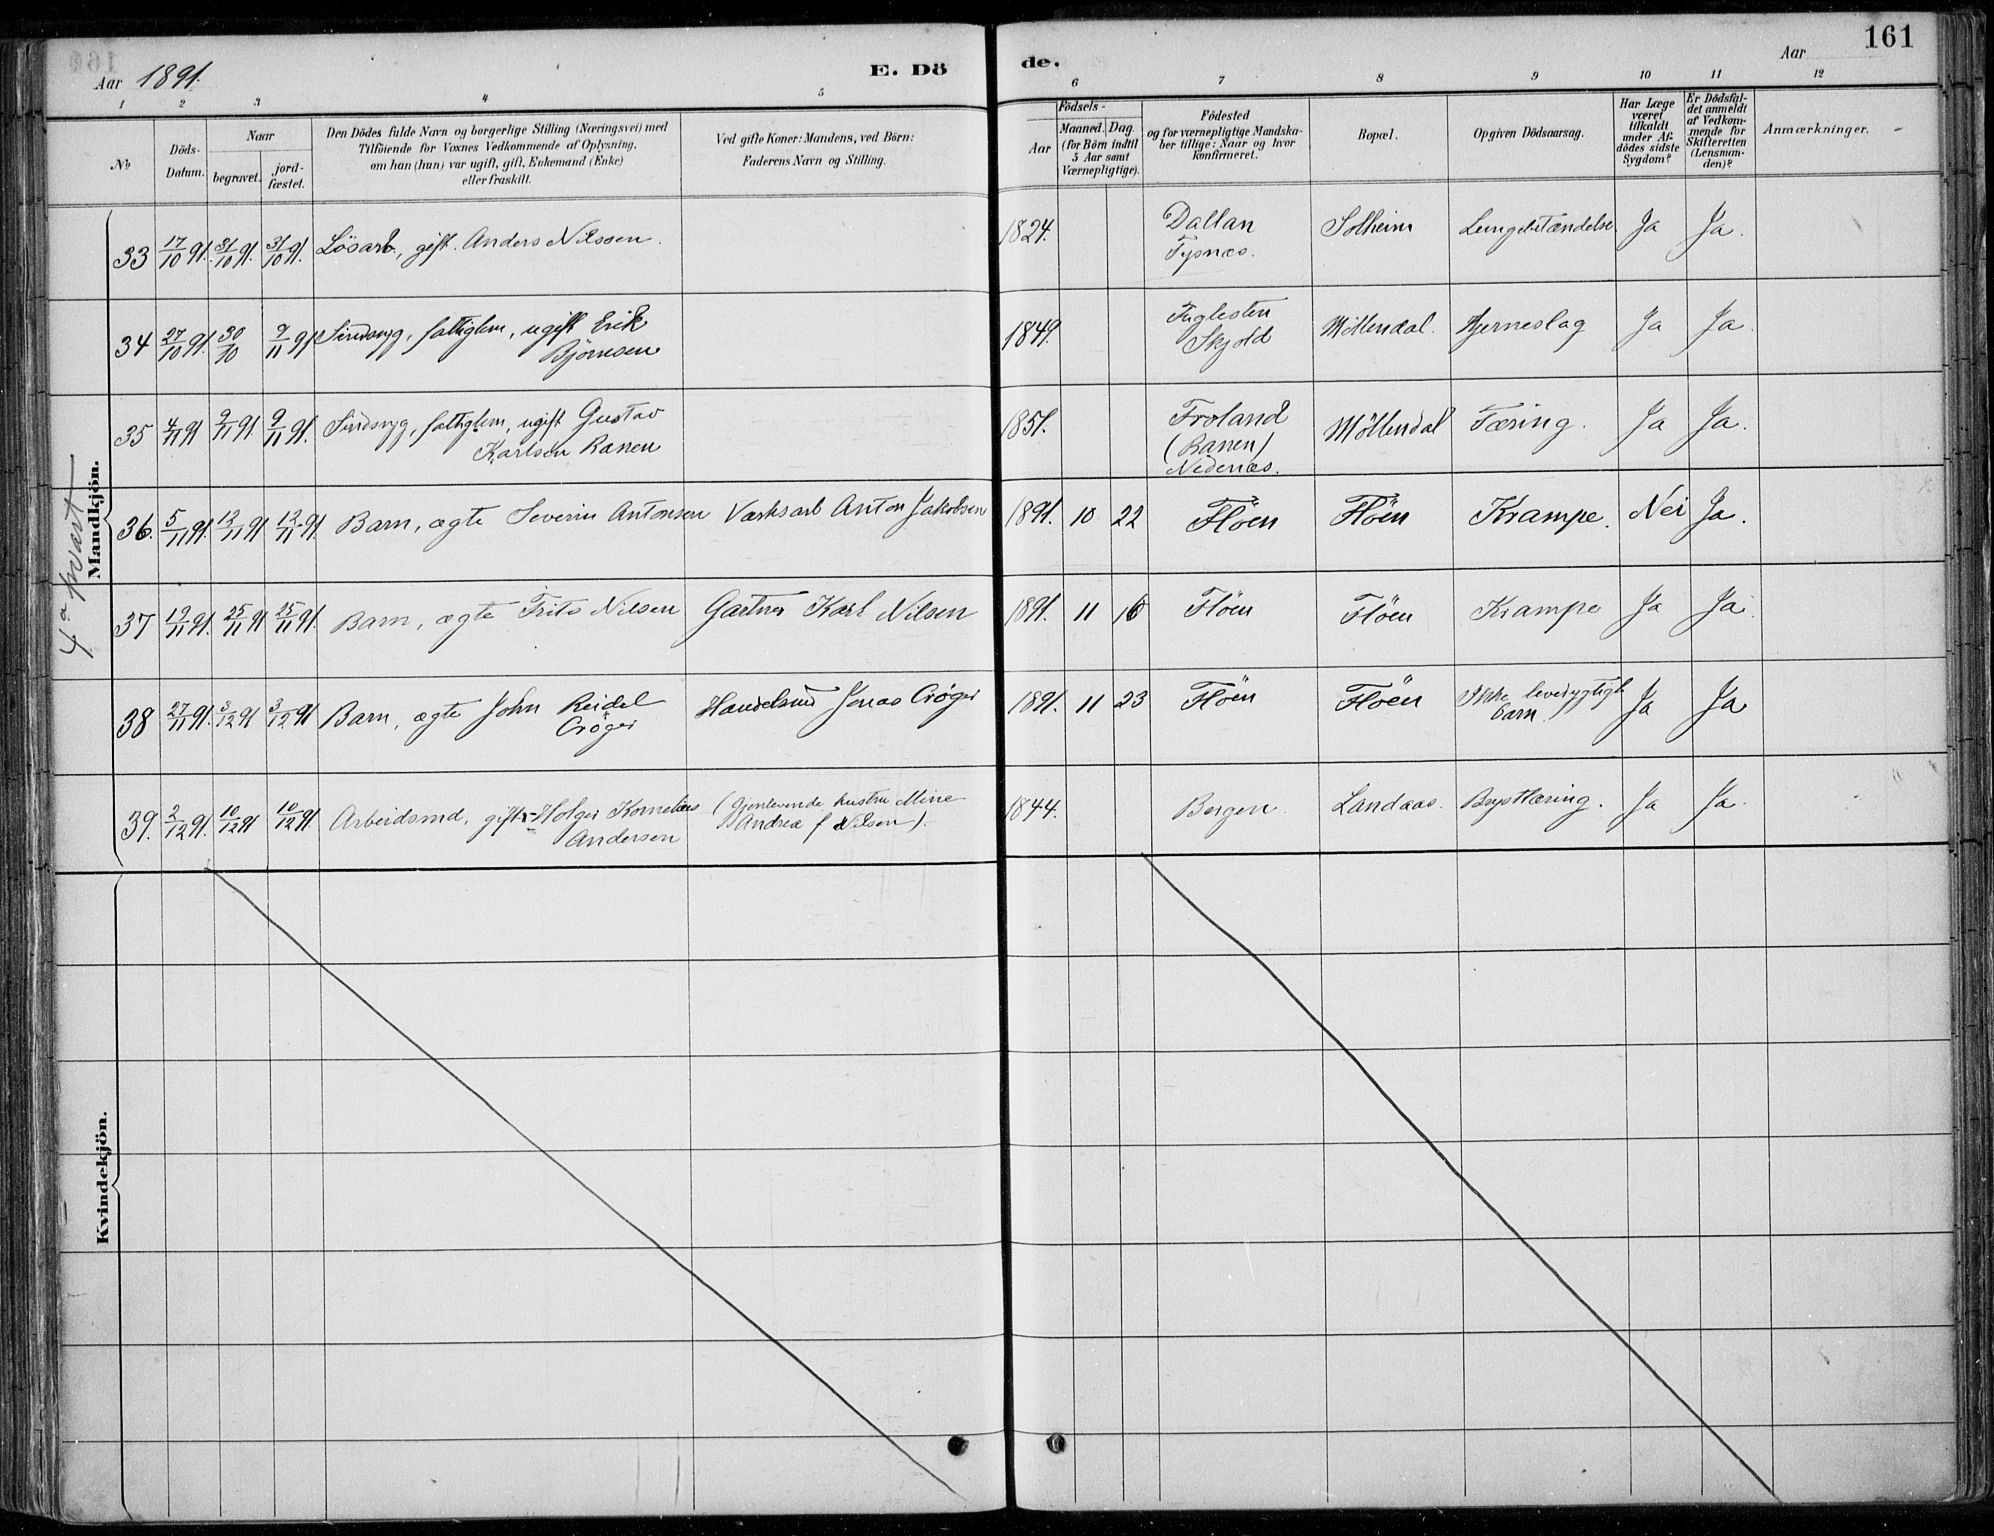 161
Aar 1891.
E. Dö
de.
Aar
1 2 3 4 5 6 7 8 9 10 11 12
No
Döds-Datum.
Naar
begravet.
jord-fæstet.
Den Dödes fulde Navn og borgerlige Stilling (Næringsvei) med
Tilföiende for Voxnes Vedkommende af Oplysning,
om han (hun) var ugift, gift, Enkemand (Enke)
eller fraskilt.
Ved gifte Koner: Mandens, ved Börn:
Faderens Navn og Stilling.
Födsels-
Aar
Maaned. Dag.
(for Börn indtil
5 Aar samt
Værnepligtige).
Födested
og for værnepligtige Mandska-
ber tillige: Naar og hvor
konfirmeret.
Bopæl.
Opgiven Dödsaarsag.
Har Læge
været
tilkaldt
under Af-
dödes sidste
Sygdom?
Er Dödsfal-
det anmeldt
af Vedkom-
mende for
Skifteretten
(Lensman-
den)?
Anmærkninger.
Mandkjön.
33 17/10 91. 31/10 91. 31/10 91. Lösarb., gift. Anders Nilssen. 1824. Dallan Tysnæs. Solheim Lungebetændelse Ja Ja.
34 27/10 91. 30/10 9/11 91 Sindssyg, fattiglem, ugift Erik Björnsen 1849. Fuglesten Skjold Möllendal. Hjerneslag Ja Ja.
35 4/11 91 9/11 91 9/11 91. Sindssyg, fattiglem, ugift Gustav Karlsen Ranen 1851. Froland (Ranen) Nedenæs. Möllendal Tæring. Ja Ja.
36. 5/11 91. 13/11 91 13/11 91. Barn, ægte Severin Antonsen Værksarb Anton Jakobsen 1891. 10 22 Flöen Flöen Krampe. Nei Ja.
37 19/11 91. 25/11 91 25/11 91. Barn, ægte Frits Nilsen Gartner Karl Nilsen 1891. 11 16 Flöen Flöen Krampe Ja Ja
38 27/11 91. 3/12 91 3/12 91 Barn, ægte John Reidel Cröger Handelsmd Jonas Cröger 1891. 11 23 Flöen Flöen Ikke levedygtigt barn. Ja Ja
39. 2/12 91. 10/12 91 10/12 91. Arbeidsmd, gift Holger Kornelius Andersen (Gjenlevende hustru Mine Andrea f Nilsen). 1844. Bergen. Landaas. Brysttæring. Ja Ja.
Kvindekjön.